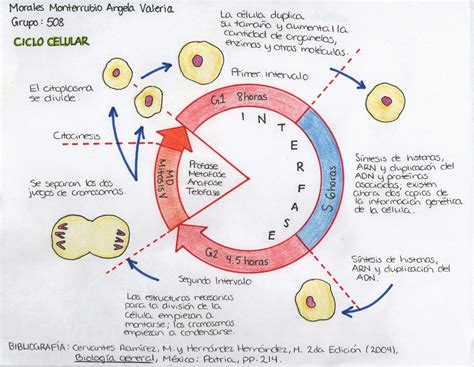 Morales Monterrubio Angela Valeria
Grupo: 508
CICLO CELULAR
La célula duplica
su tamaño y aumenta l la
cantidad de organelos,
enzimas y otras moléculas.
El citoplasma
se divide.
Primer intervalo
G1 8 horas
Citocinesis
INTERFASE
Profase
Metafase
Anafase
Telofase
MD
Mitosis
S 6 horas
Síntesis de histonas,
ADN y duplicación del
ADN y proteínas
asociadas; existen
ahora dos copias de
la información genética
de la célula.
Se separan los dos
juegos de cromosomas.
G2 4.5 horas
Segundo Intervalo
Síntesis de histonas,
ARN y duplicación del
ADN.
Las estructuras necesarias
para la división de la
célula empiezan a
montarse; los cromosomas
empiezan a condensarse.
BIBLIOGRAFÍA: Cervantes Ramírez, M. y Hernández Hernández, M. 2da Edición (2004),
Biología general, México: Patria, PP-214.